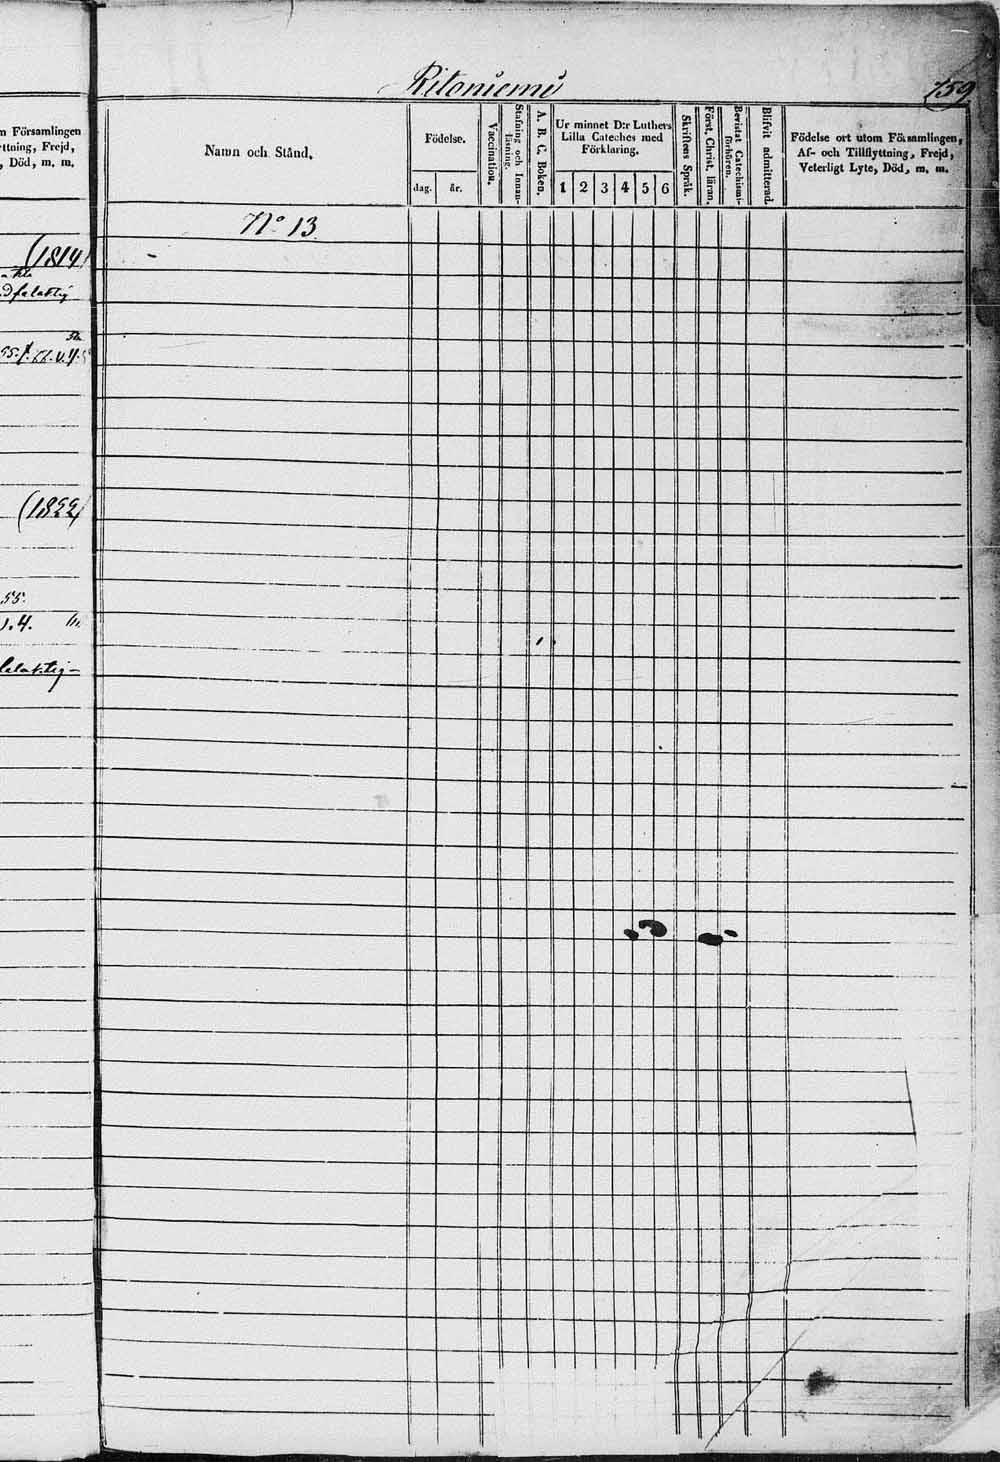 Ritoniemi
759
m Församlingen
ttning, Frejd,
, Död, m. m.
Namn och Stånd.
Födelse.
dag.
år.
Vaccination.
Stafning och Innan-
läsning.
A. B. C. Boken.
Ur minnet D:r Luthers
Lilla Cateches med
Förklaring.
1 2 3 4 5 6
Skriftens Språk.
Först. Christ. läran.
Bevistat Catechismi-
förhören.
Blifvit admitterad.
Födelse ort utom Församlingen,
Af- och Tillflyttning, Frejd,
Veterligt Lyte, Död, m. m.
No 13
(1814)
(1822)
55.